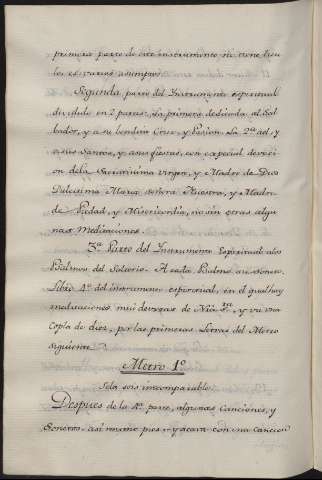 primera parte de este instrumento
les et varios asumptos.
Segunda, parte del Instrumento espiritual
dividido en 2 partes. La primera dedicada al Sal
bador, y a su bendita Cruz, y Passion. La 2ª ad, y
a sus Santos, y a sus fiestas, con especial devoci
on dela Sacratissima virgen, y Madre de Dios
Dulcissima Maria señora Nuestra, y Madre
de Piedad, y Misericordia, no sin otras algu
nas Meditaciones.
3ª Parte del Instrumento Espiritual alos
Psalmos del Salterio. A cada Psalmo su soneto.
Libro 4º del instrumento espiritual, en el qual hay
meditaciones mui devotas de Nrª Srª y va una
Copia de diez, por las primeras Letras del Metro
siguiente.
Metro 1º
Sola sois incomparable
Despues de la 4ª parte, algunas Canciones, y
Sonetos. asi mismo pies y acava con una cancion